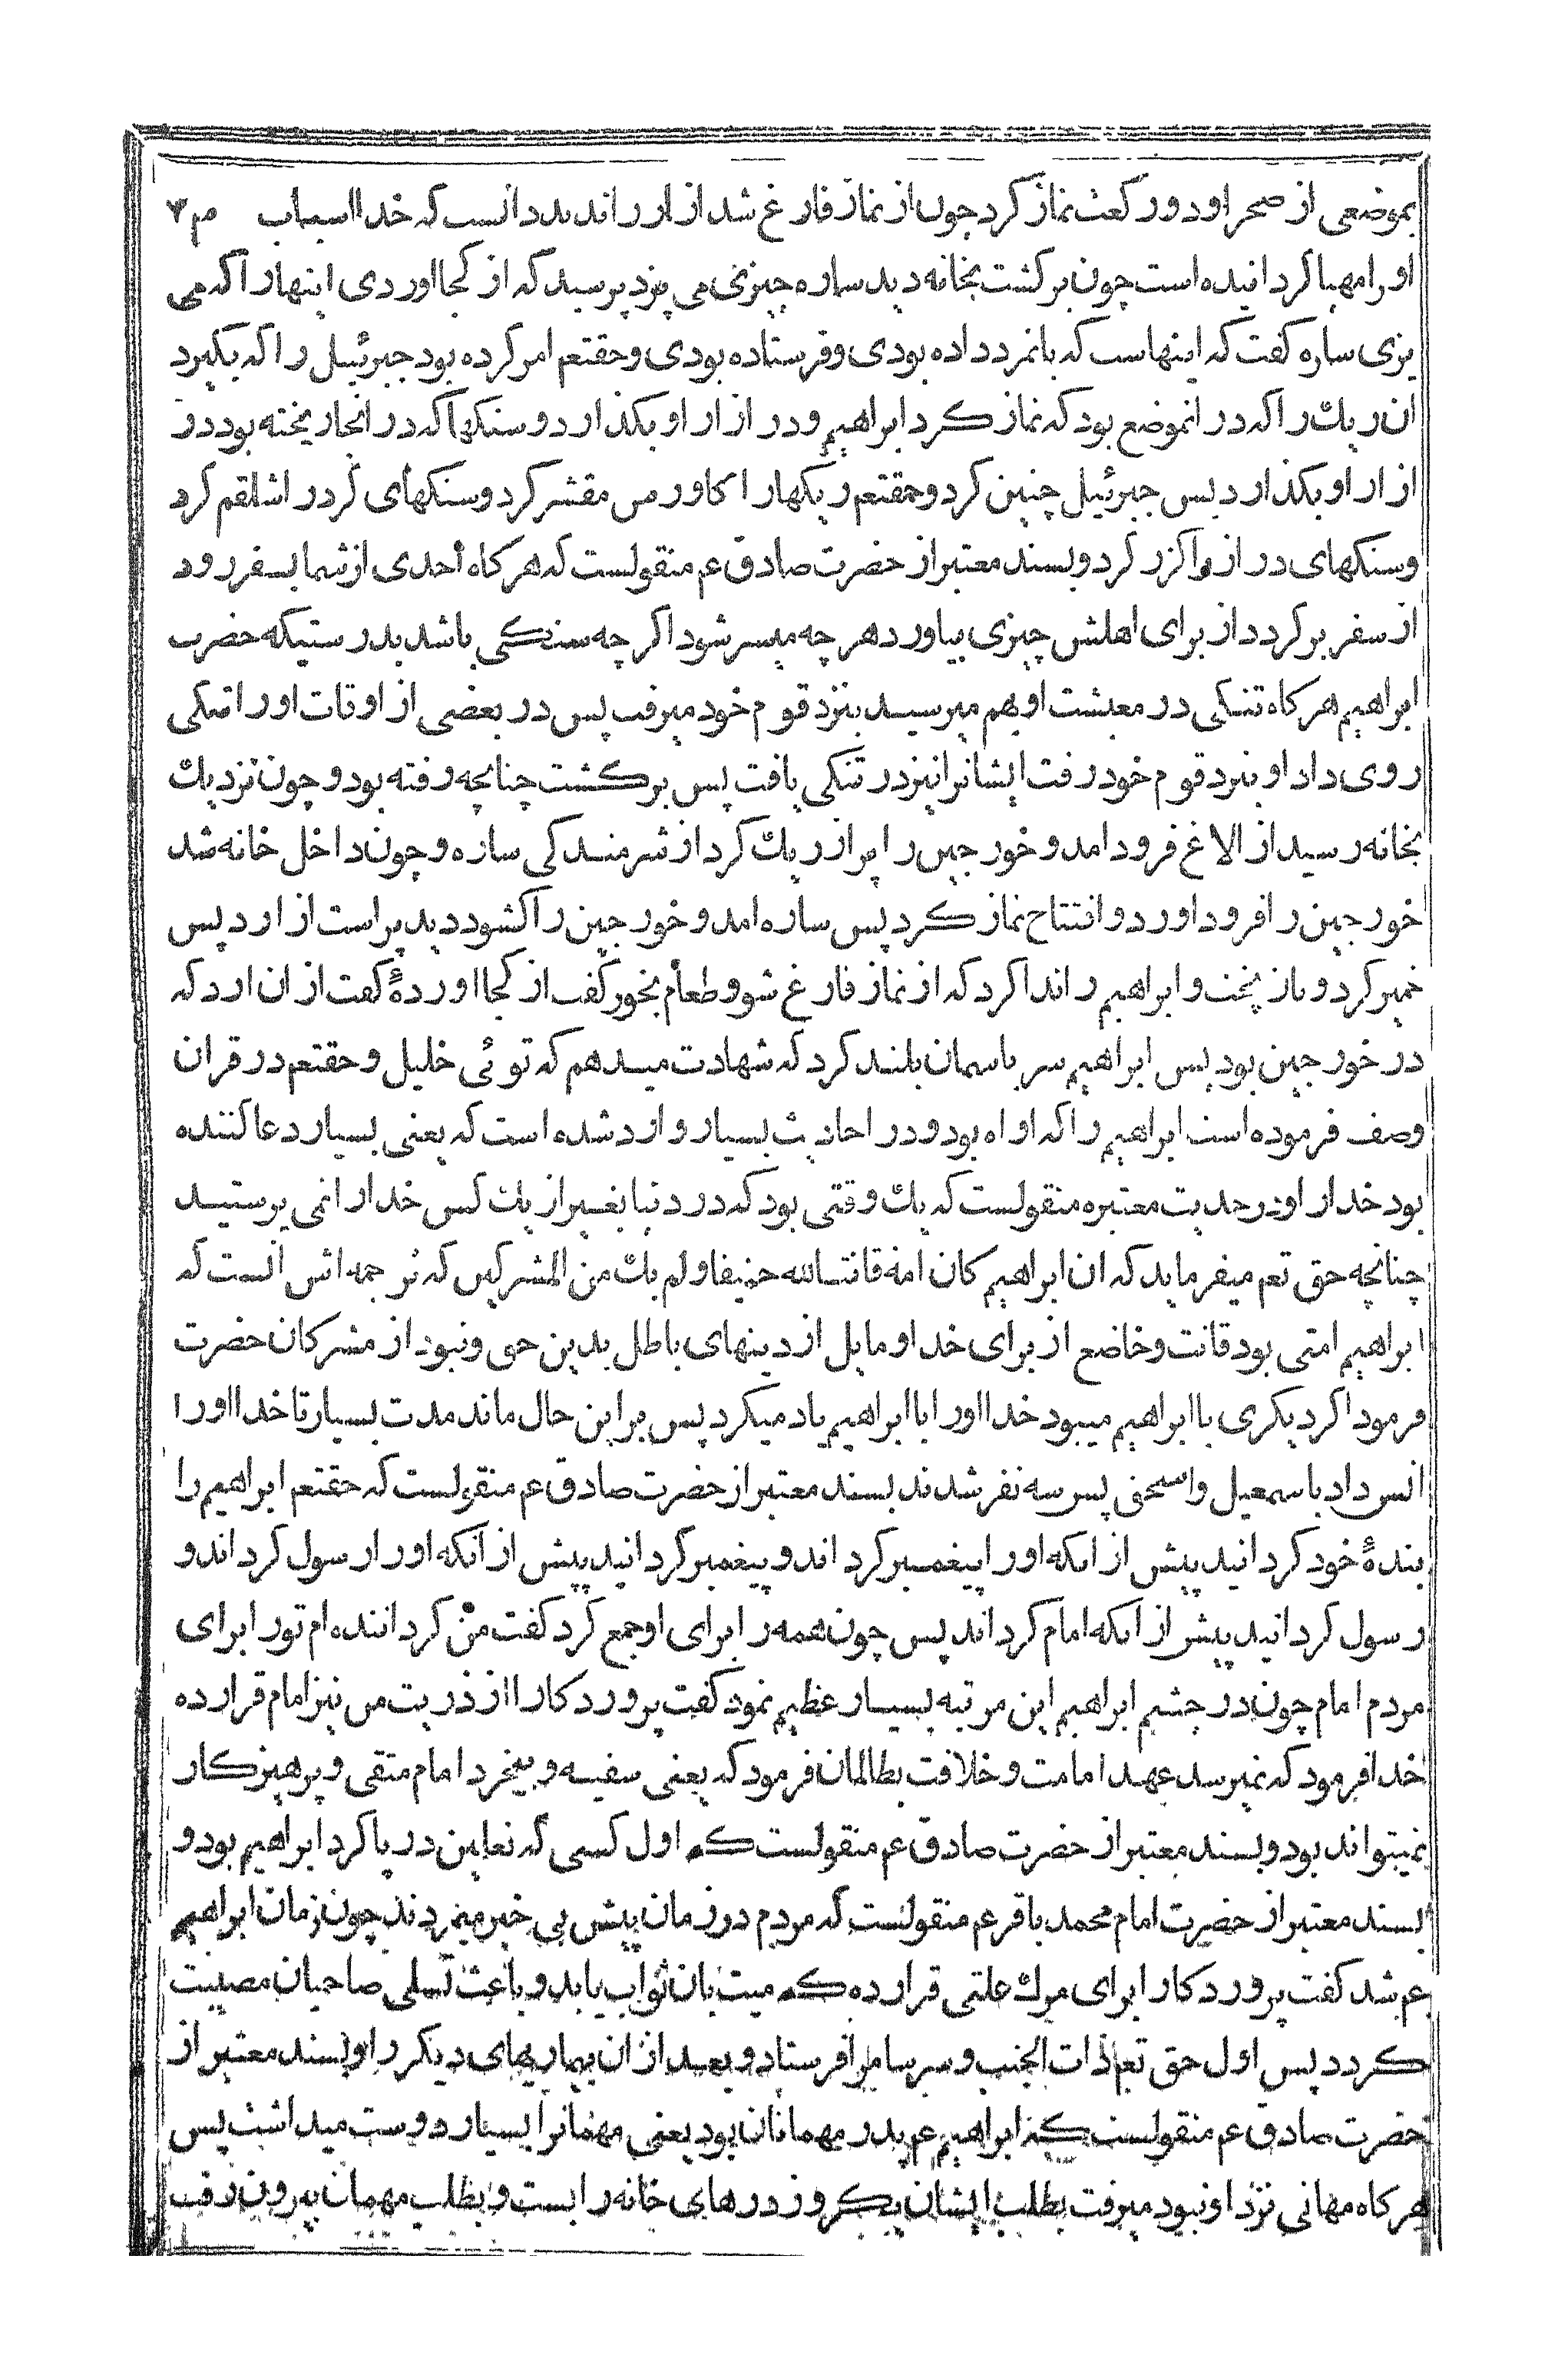 بموضعی از صحرا و دو رکعت نماز کرد چون از نماز فارغ شد از ار را ندید دانست که خدا اسباب
او را مهیا کردانیده است چون برکشت بخانه دید ساره چیزی می پزد پرسید که از کجا اوردی اینها را که می
پزی ساره کفت که اینهاست که بانمرد داده بودی و فرستاده بودی و حقتعم امر کرده بود جبرئیل را که بکیرد
ان ریك را که در انموضع بود که نماز کرد ابراهیم و در ازار او بکذارد و سنکها که در انجا ریخته بود در
ازار او بکذارد پس جبرئیل چنین کرد و حقتعم ریکها را کاورس مقشر کرد و سنکهای کرد را شلقم کرد
و سنکهای دراز را کزر کرد و بسند معتبر از حضرت صادق عم منقولست که هرکاه احدی از شما بسفر رود
از سفر برکردد از برای اهلش چیزی بیاورد هر چه میسر شود اکر چه سنکی باشد بدرستیکه حضرت
ابراهیم هرکاه تنکی در معیشت او بهم میرسید بنزد قوم خود میرفت پس در بعضی از اوقات او را تنکی
روی داد او بنزد قوم خود رفت ایشانرا نیز در تنکی یافت پس برکشت چنانچه رفته بود و چون نزدیك
بخانه رسید از الاغ فرود امد و خورجین را پر از ریك کرد از شرمندکی ساره و چون داخل خانه شد
خورجین را فرود اورد و افتتاح نماز کرد پس ساره امد و خورجین را کشود دید پر است از ارد پس
خمیر کرد و نان پخت و ابراهیم را ندا کرد که از نماز فارغ شو و طعام بخور کفت از کجا اوردهٔ کفت از ان ارد که
در خورجین بود پس ابراهیم سر باسمان بلند کرد که شهادت میدهم که توئی خلیل و حقتعم در قران
وصف فرموده است ابراهیم را که اواه بود و در احادیث بسیار وارد شده است که یعنی بسیار دعا کننده
بود خدا را و در حدیت معتبره منقولست که یك وقتی بود که در دنیا بغیر از یك کس خدا را نمی پرستید
چنانچه حق تعم میفرماید که ان ابراهیم کان امة قانتا لله حنیفا و لم یك من المشرکین که ترجمه اش انست که
ابراهیم امتی بود قانت و خاضع از برای خدا و مایل از دینهای باطل بدین حق و نبود از مشرکان حضرت
فرمود اکر دیکری با ابراهیم میبود خدا او را با ابراهیم یاد میکرد پس بر این حال ماند مدت بسیار تا خدا او را
انس داد باسمعیل و اسحق پس سه نفر شدند بسند معتبر از حضرت صادق عم منقولست که حقتعم ابراهیم را
بندهٔ خود کردانید پیش از انکه او را پیغمبر کرداند و پیغمبر کردانید پیش از انکه او را رسول کرداند و
رسول کردانید پیش از انکه امام کرداند پس چون همه را برای او جمع کرد کفت من کرداننده ام تو را برای
مردم امام چون در چشم ابراهیم این مرتبه بسیار عظیم نمود کفت پروردکارا از ذریت من نیز امام قرار ده
خدا فرمود که نمیرسد عهد امامت و خلافت بظالمان فرمود که یعنی سفیه و بیخرد امام متقی و پرهیزکار
نمیتواند بود و بسند معتبر از حضرت صادق عم منقولست که اول کسی که نعلین در پا کرد ابراهیم بود و
بسند معتبر از حضرت امام محمد باقر عم منقولست که مردم در زمان پیش بی خبر میمردند چون زمان ابراهیم
عم شد کفت پروردکارا برای مرك علتی قرار ده که میت بان ثواب یابد و باعث تسلی صاحبان مصیبت
کردد پس اول حق تعم ذات الجنب و سرسام را فرستاد و بعد از ان بیماریهای دیکر را و بسند معتبر از
حضرت صادق عم منقولست که ابراهیم عم پدر مهمانان بود یعنی مهمانرا بسیار دوست میداشت پس
هرکاه مهمانی نزد او نبود میرفت بطلب ایشان یکروز درهای خانه را بست و بطلب مهمان بیرون رفت